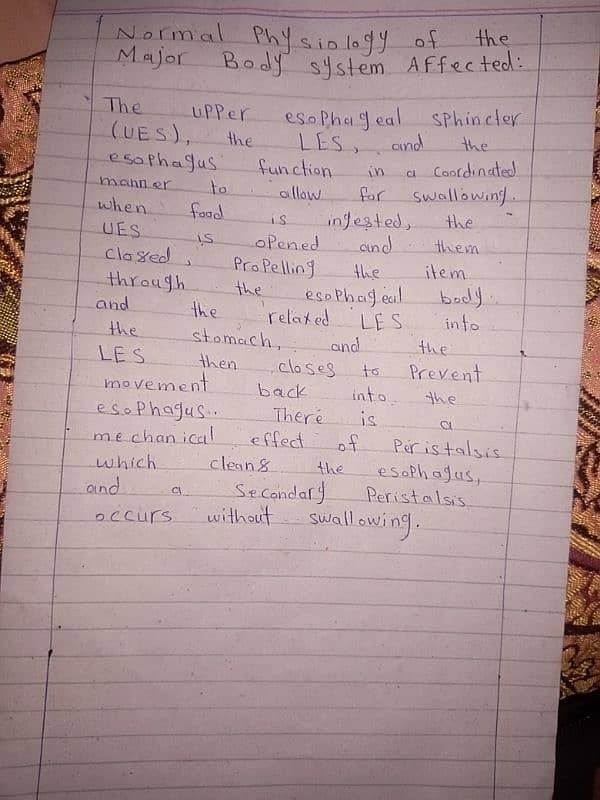 Normal Physiology of the
Major Body system Affected:
The upper esophageal sphincter
(UES), the LES, and the
esophagus function in a coordinated
manner to allow for swallowing.
when food is ingested, the
UES is opened and them
closed, Propelling the item
through the esophageal body
and the relaxed LES into
the stomach, and the
LES then closes to Prevent
movement back into the
esophagus.. There is a
mechanical effect of Peristalsis
which cleans the esophagus,
and a Secondary Peristalsis
occurs without swallowing.